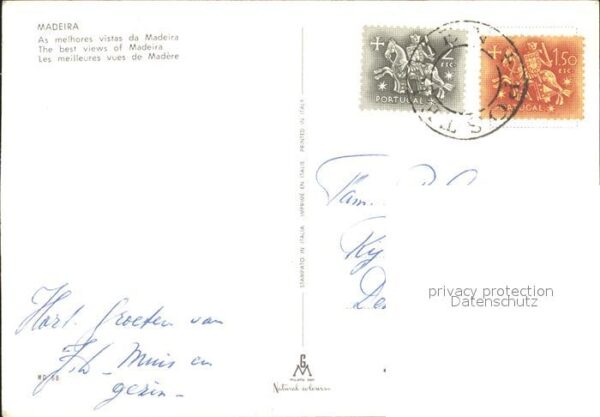 MADEIRA
As melhores vistas da Madeira
The best views of Madeira
Les meilleures vues de Madère
2 ESC
PORTUGAL
1$50
ESC
PORTUGAL
STAMPATO IN ITALIA - IMPRIMÉ EN ITALIE - PRINTED IN ITALY
Fam.
privacy protection
Datenschutz
Hart. Groeten van
Muis en
gezin -
GM
Natural colours